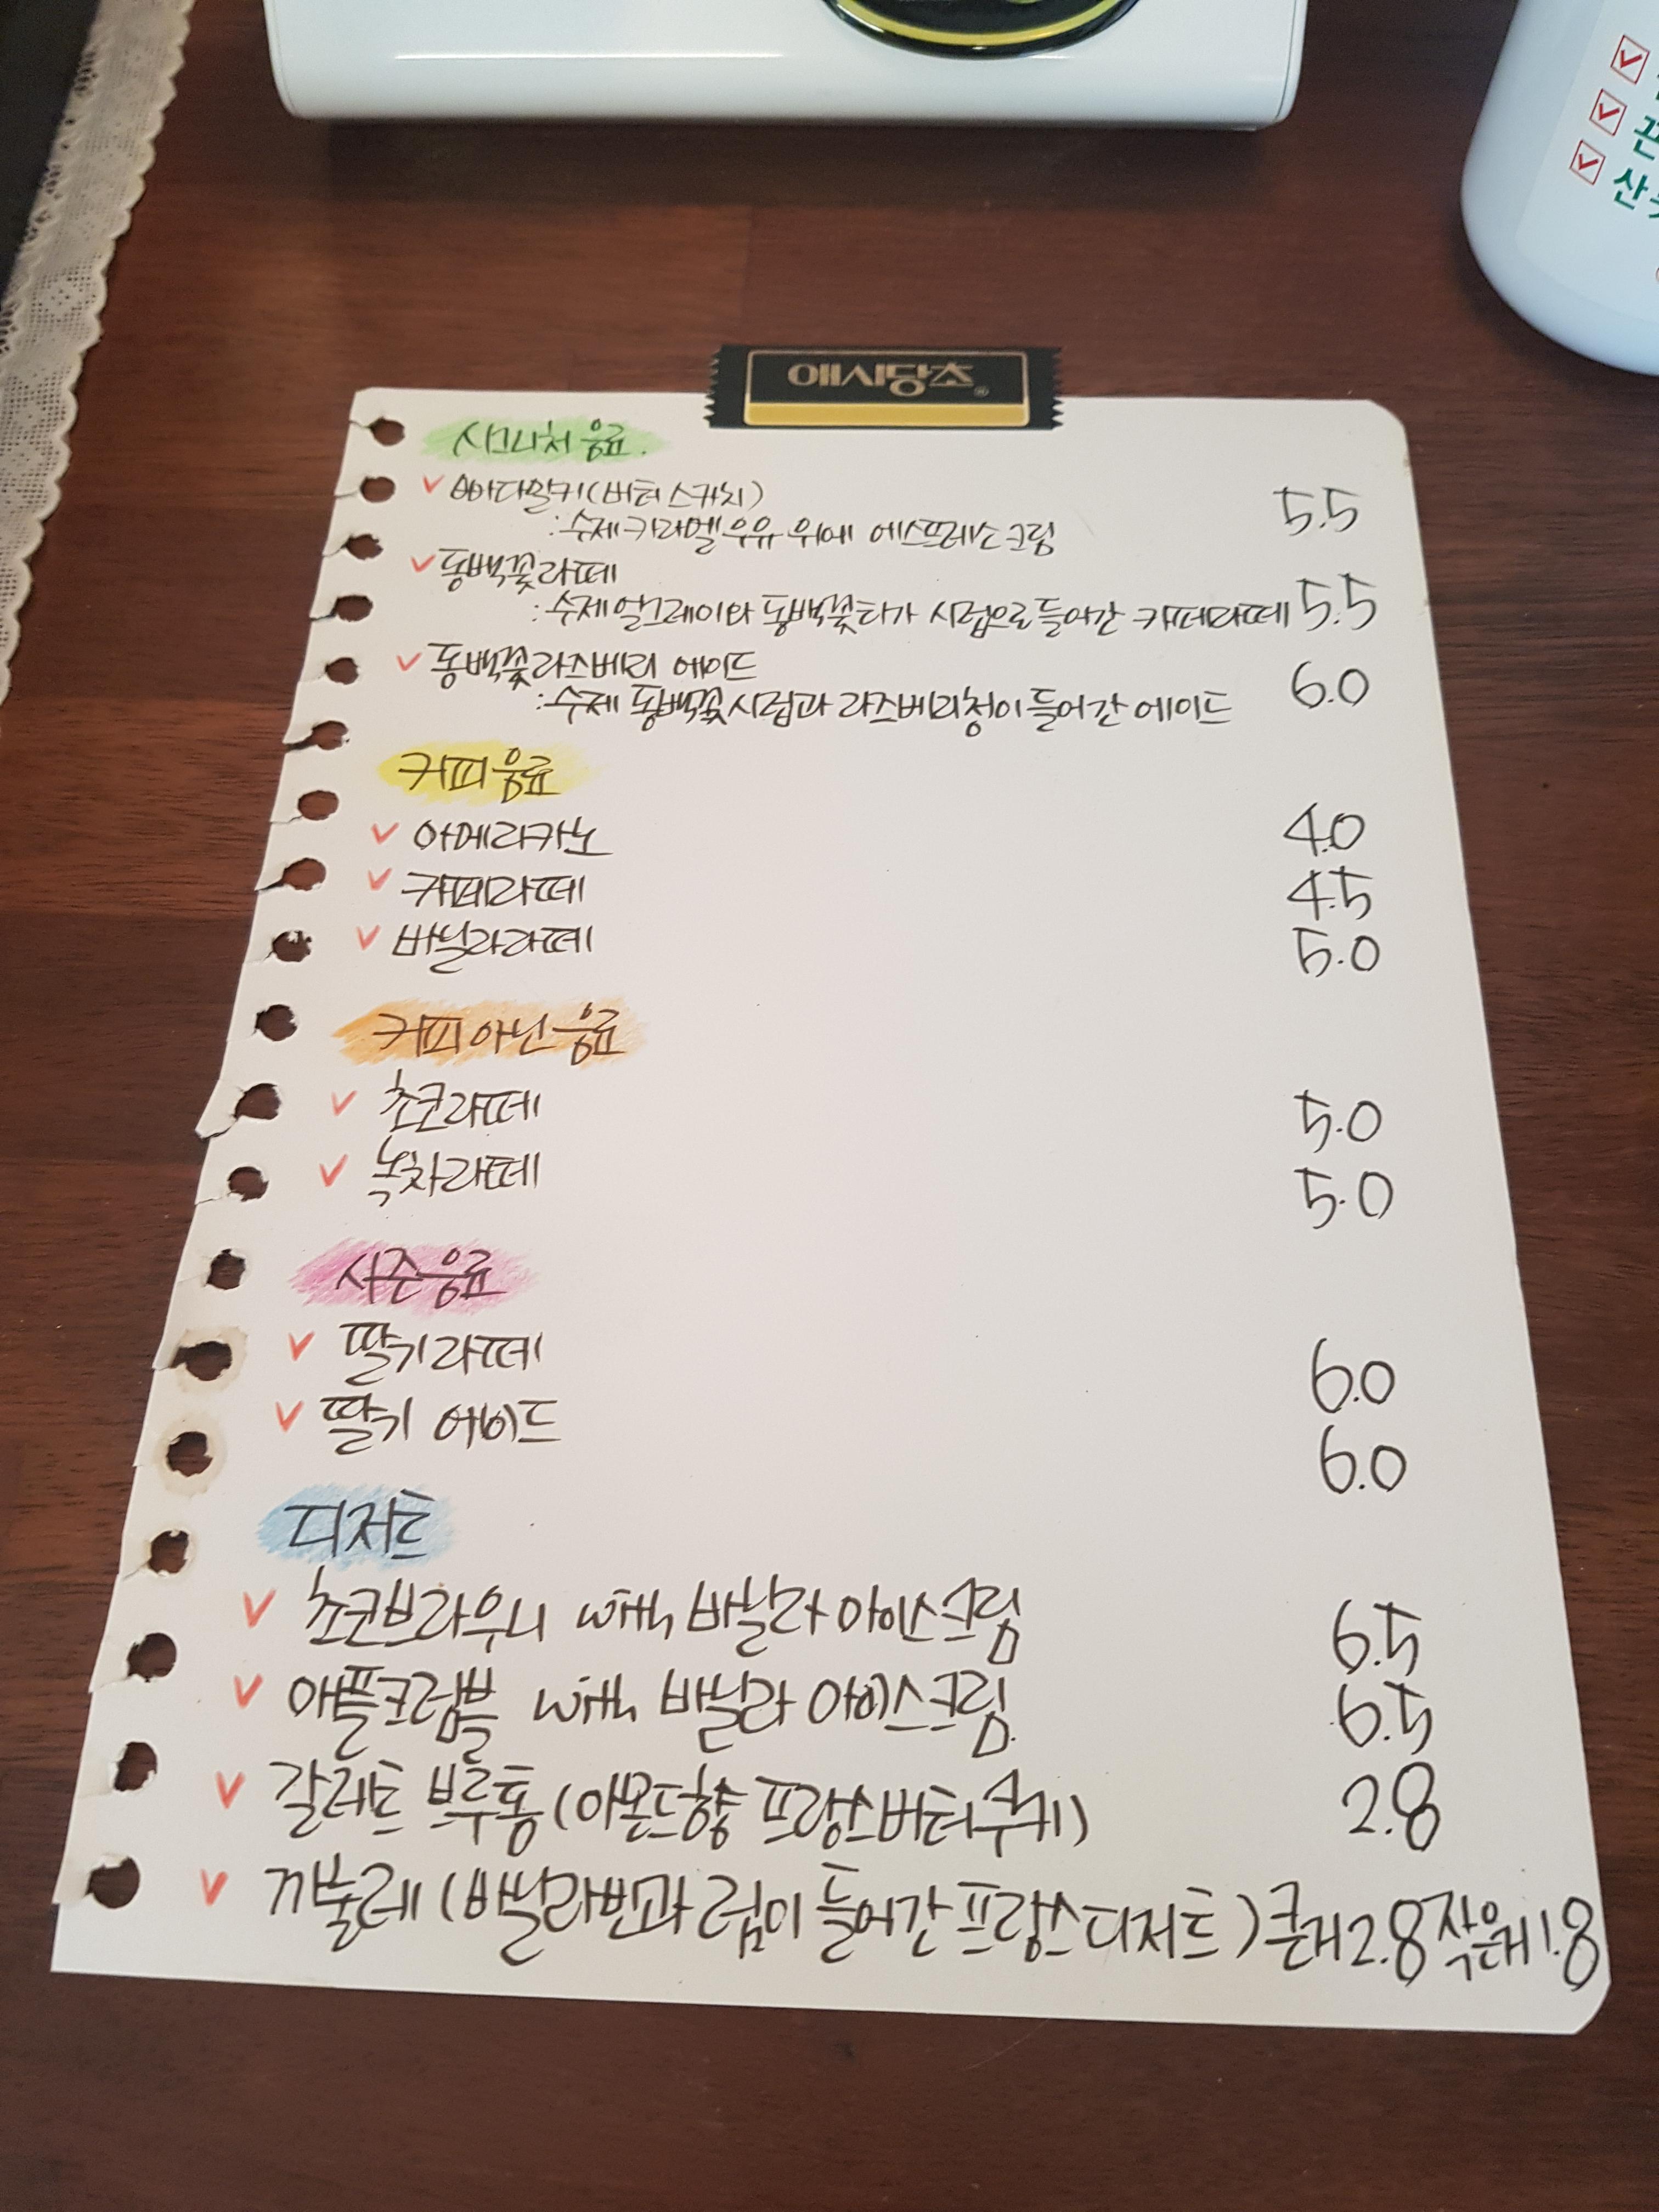 끈
산
쵸당시애
시그니처 음료.
빠다밀키(버터스카치) 5.5
:수제카라멜우유 위에 에스프레소크림
동백꽃라떼
:수제얼그레이와 동백꽃타가 시럽으로들어간 카페라떼 5.5
동백꽃라즈베리 에이드 6.0
:수제 동백꽃시럽과 라즈베리청이들어간에이드
커피음료
아메리카노 4.0
카페라떼 4.5
바닐라라떼 5.0
커피아닌음료
초코라떼 5.0
녹차라떼 5.0
시즌음료
딸기라떼 6.0
딸기 에이드 6.0
디저트
초코브라우니 with 바닐라아이스크림 6.5
애플크럼블 with 바닐라 아이스크림. 6.5
갈레트 브루통(아몬드향 프랑스버터쿠키) 2.8
까눌레(바닐라빈과 럼이 들어간 프랑스디저트) 큰거2.8 작은거1.8